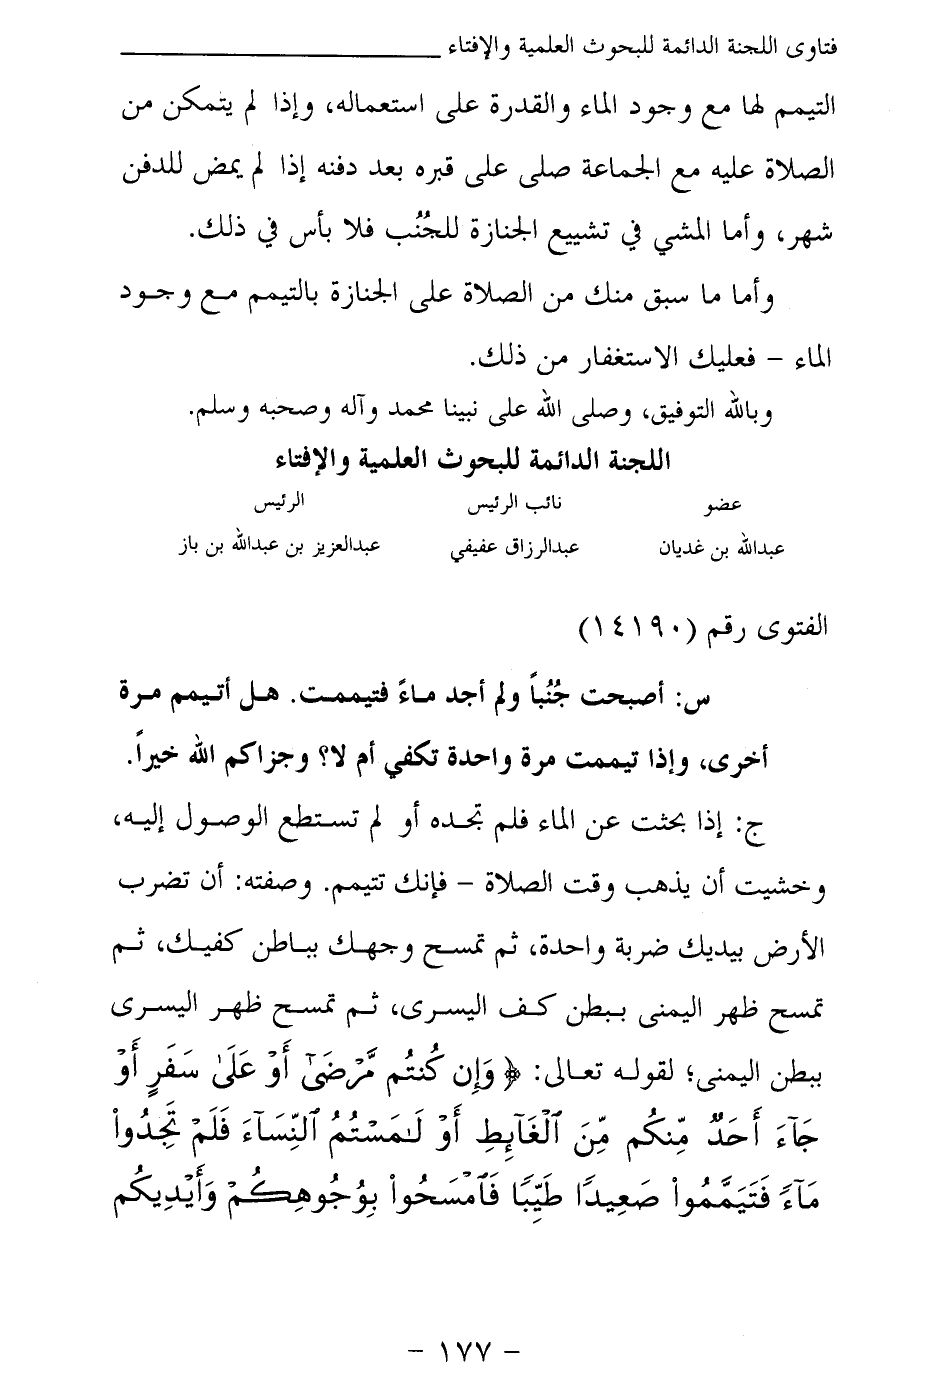 فتاوى اللجنة الدائمة للبحوث العلمية والإفتاء
التيمم لها مع وجود الماء والقدرة على استعماله، وإذا لم يتمكن من
الصلاة عليه مع الجماعة صلى على قبره بعد دفنه إذا لم يمض للدفن
شهر، وأما المشي في تشييع الجنازة للجُنُب فلا بأس في ذلك.
وأما ما سبق منك من الصلاة على الجنازة بالتيمم مع وجود
الماء – فعليك الاستغفار من ذلك.
وبالله التوفيق، وصلى الله على نبينا محمد وآله وصحبه وسلم.
اللجنة الدائمة للبحوث العلمية والإفتاء
عضو نائب الرئيس الرئيس
عبدالله بن غديان عبدالرزاق عفيفي عبدالعزيز بن عبدالله بن باز
الفتوى رقم (١٤١٩٠)
س: أصبحت جُنُباً ولم أجد ماءً فتيممت. هل أتيمم مرة
أخرى، وإذا تيممت مرة واحدة تكفي أم لا؟ وجزاكم الله خيراً.
ج: إذا بحثت عن الماء فلم تجده أو لم تستطع الوصول إليه،
وخشيت أن يذهب وقت الصلاة – فإنك تتيمم. وصفته: أن تضرب
الأرض بيديك ضربة واحدة، ثم تمسح وجهك بباطن كفيك، ثم
تمسح ظهر اليمنى ببطن كف اليسرى، ثم تمسح ظهر اليسرى
ببطن اليمنى؛ لقوله تعالى: ﴿ وَإِن كُنتُم مَّرْضَىٰٓ أَوْ عَلَىٰ سَفَرٍ أَوْ
جَآءَ أَحَدٌ مِّنكُم مِّنَ ٱلْغَآئِطِ أَوْ لَٰمَسْتُمُ ٱلنِّسَآءَ فَلَمْ تَجِدُوا۟
مَآءً فَتَيَمَّمُوا۟ صَعِيدًا طَيِّبًا فَٱمْسَحُوا۟ بِوُجُوهِكُمْ وَأَيْدِيكُم
– ١٧٧ –